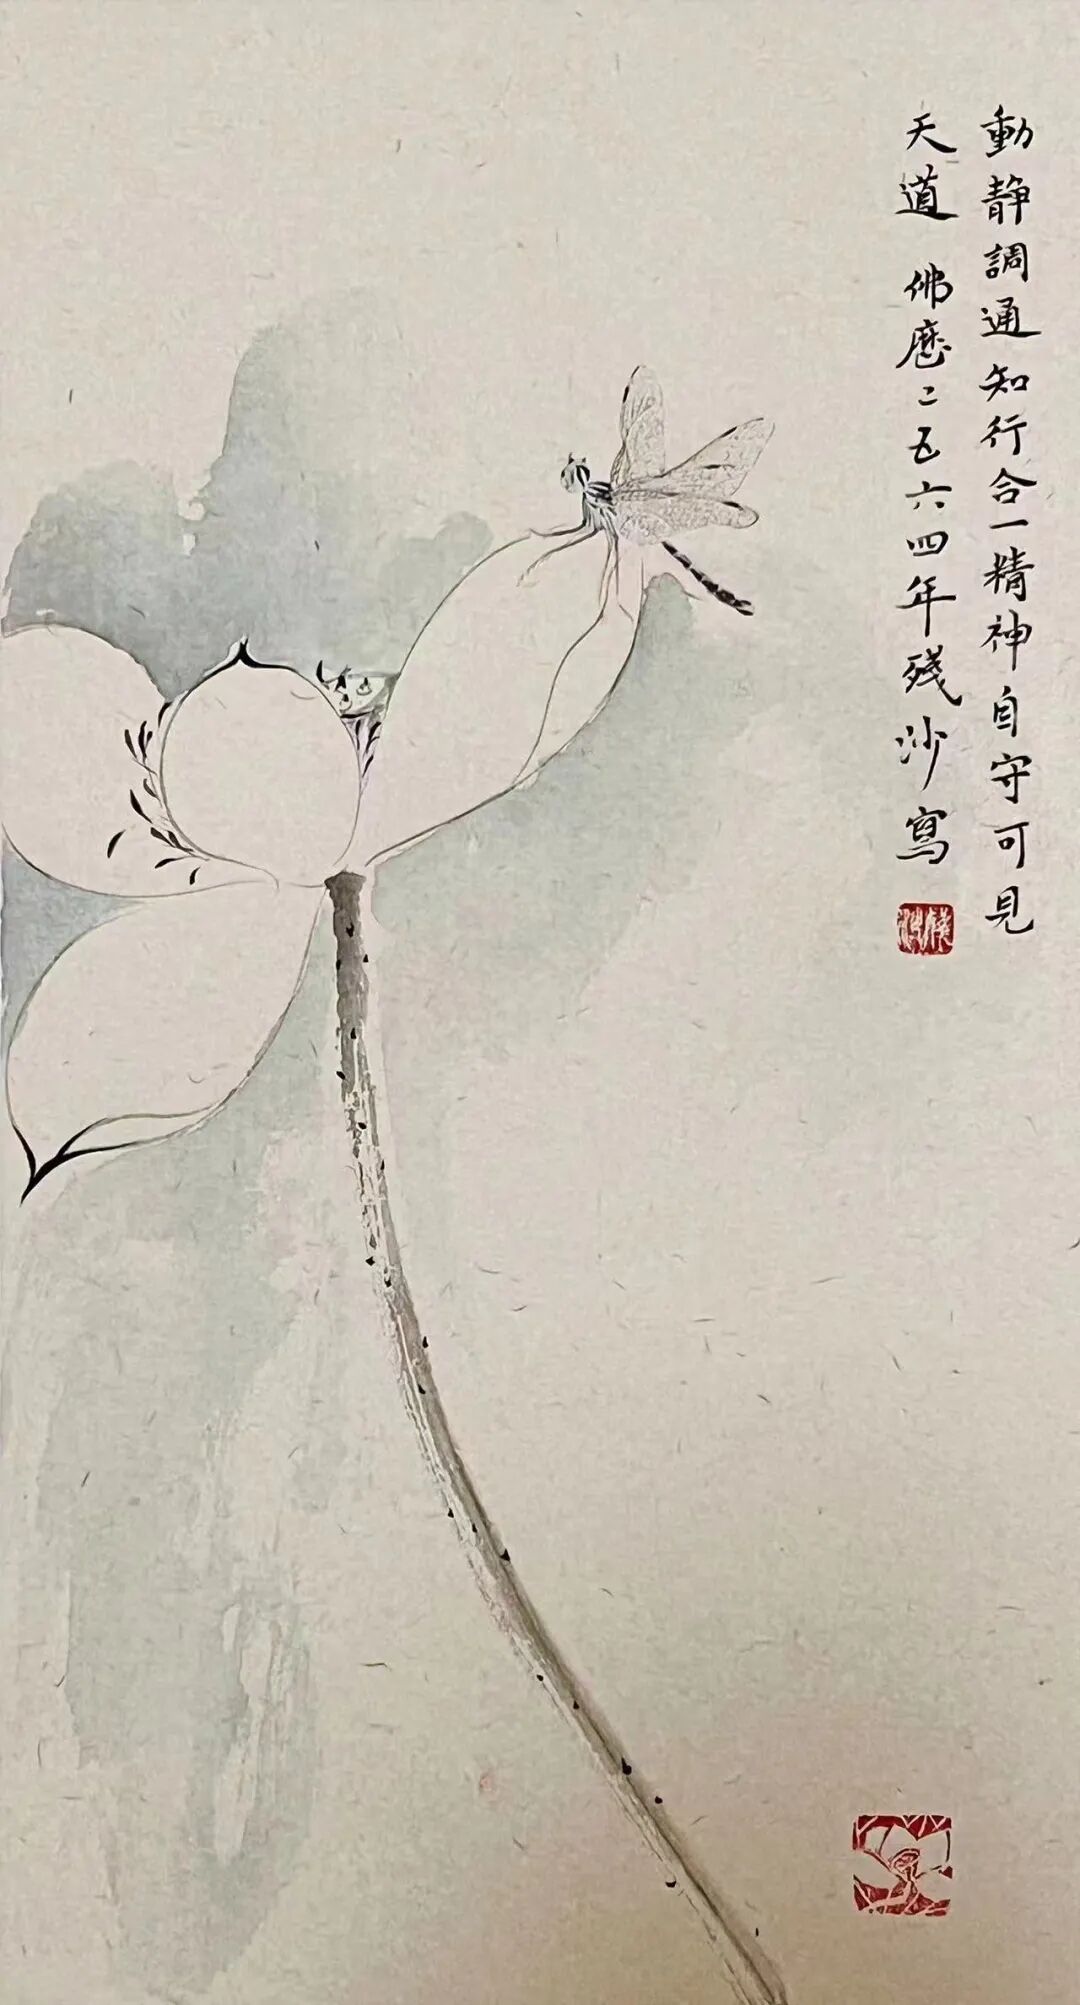 動靜調通知行合一精神自守可見
天道 佛歷二五六四年殘沙寫